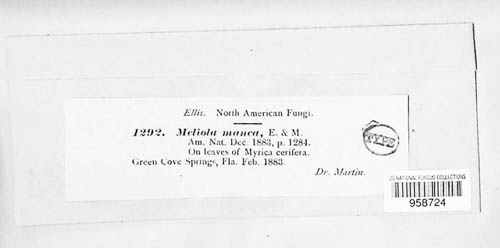 Ellis. North American Fungi.
1292. Meliola manca, E. & M.
Am. Nat. Dec. 1883, p. 1284.
On leaves of Myrica cerifera.
Green Cove Springs, Fla. Feb. 1883.
Dr. Martin.
TYPE
US NATIONAL FUNGUS COLLECTIONS
958724